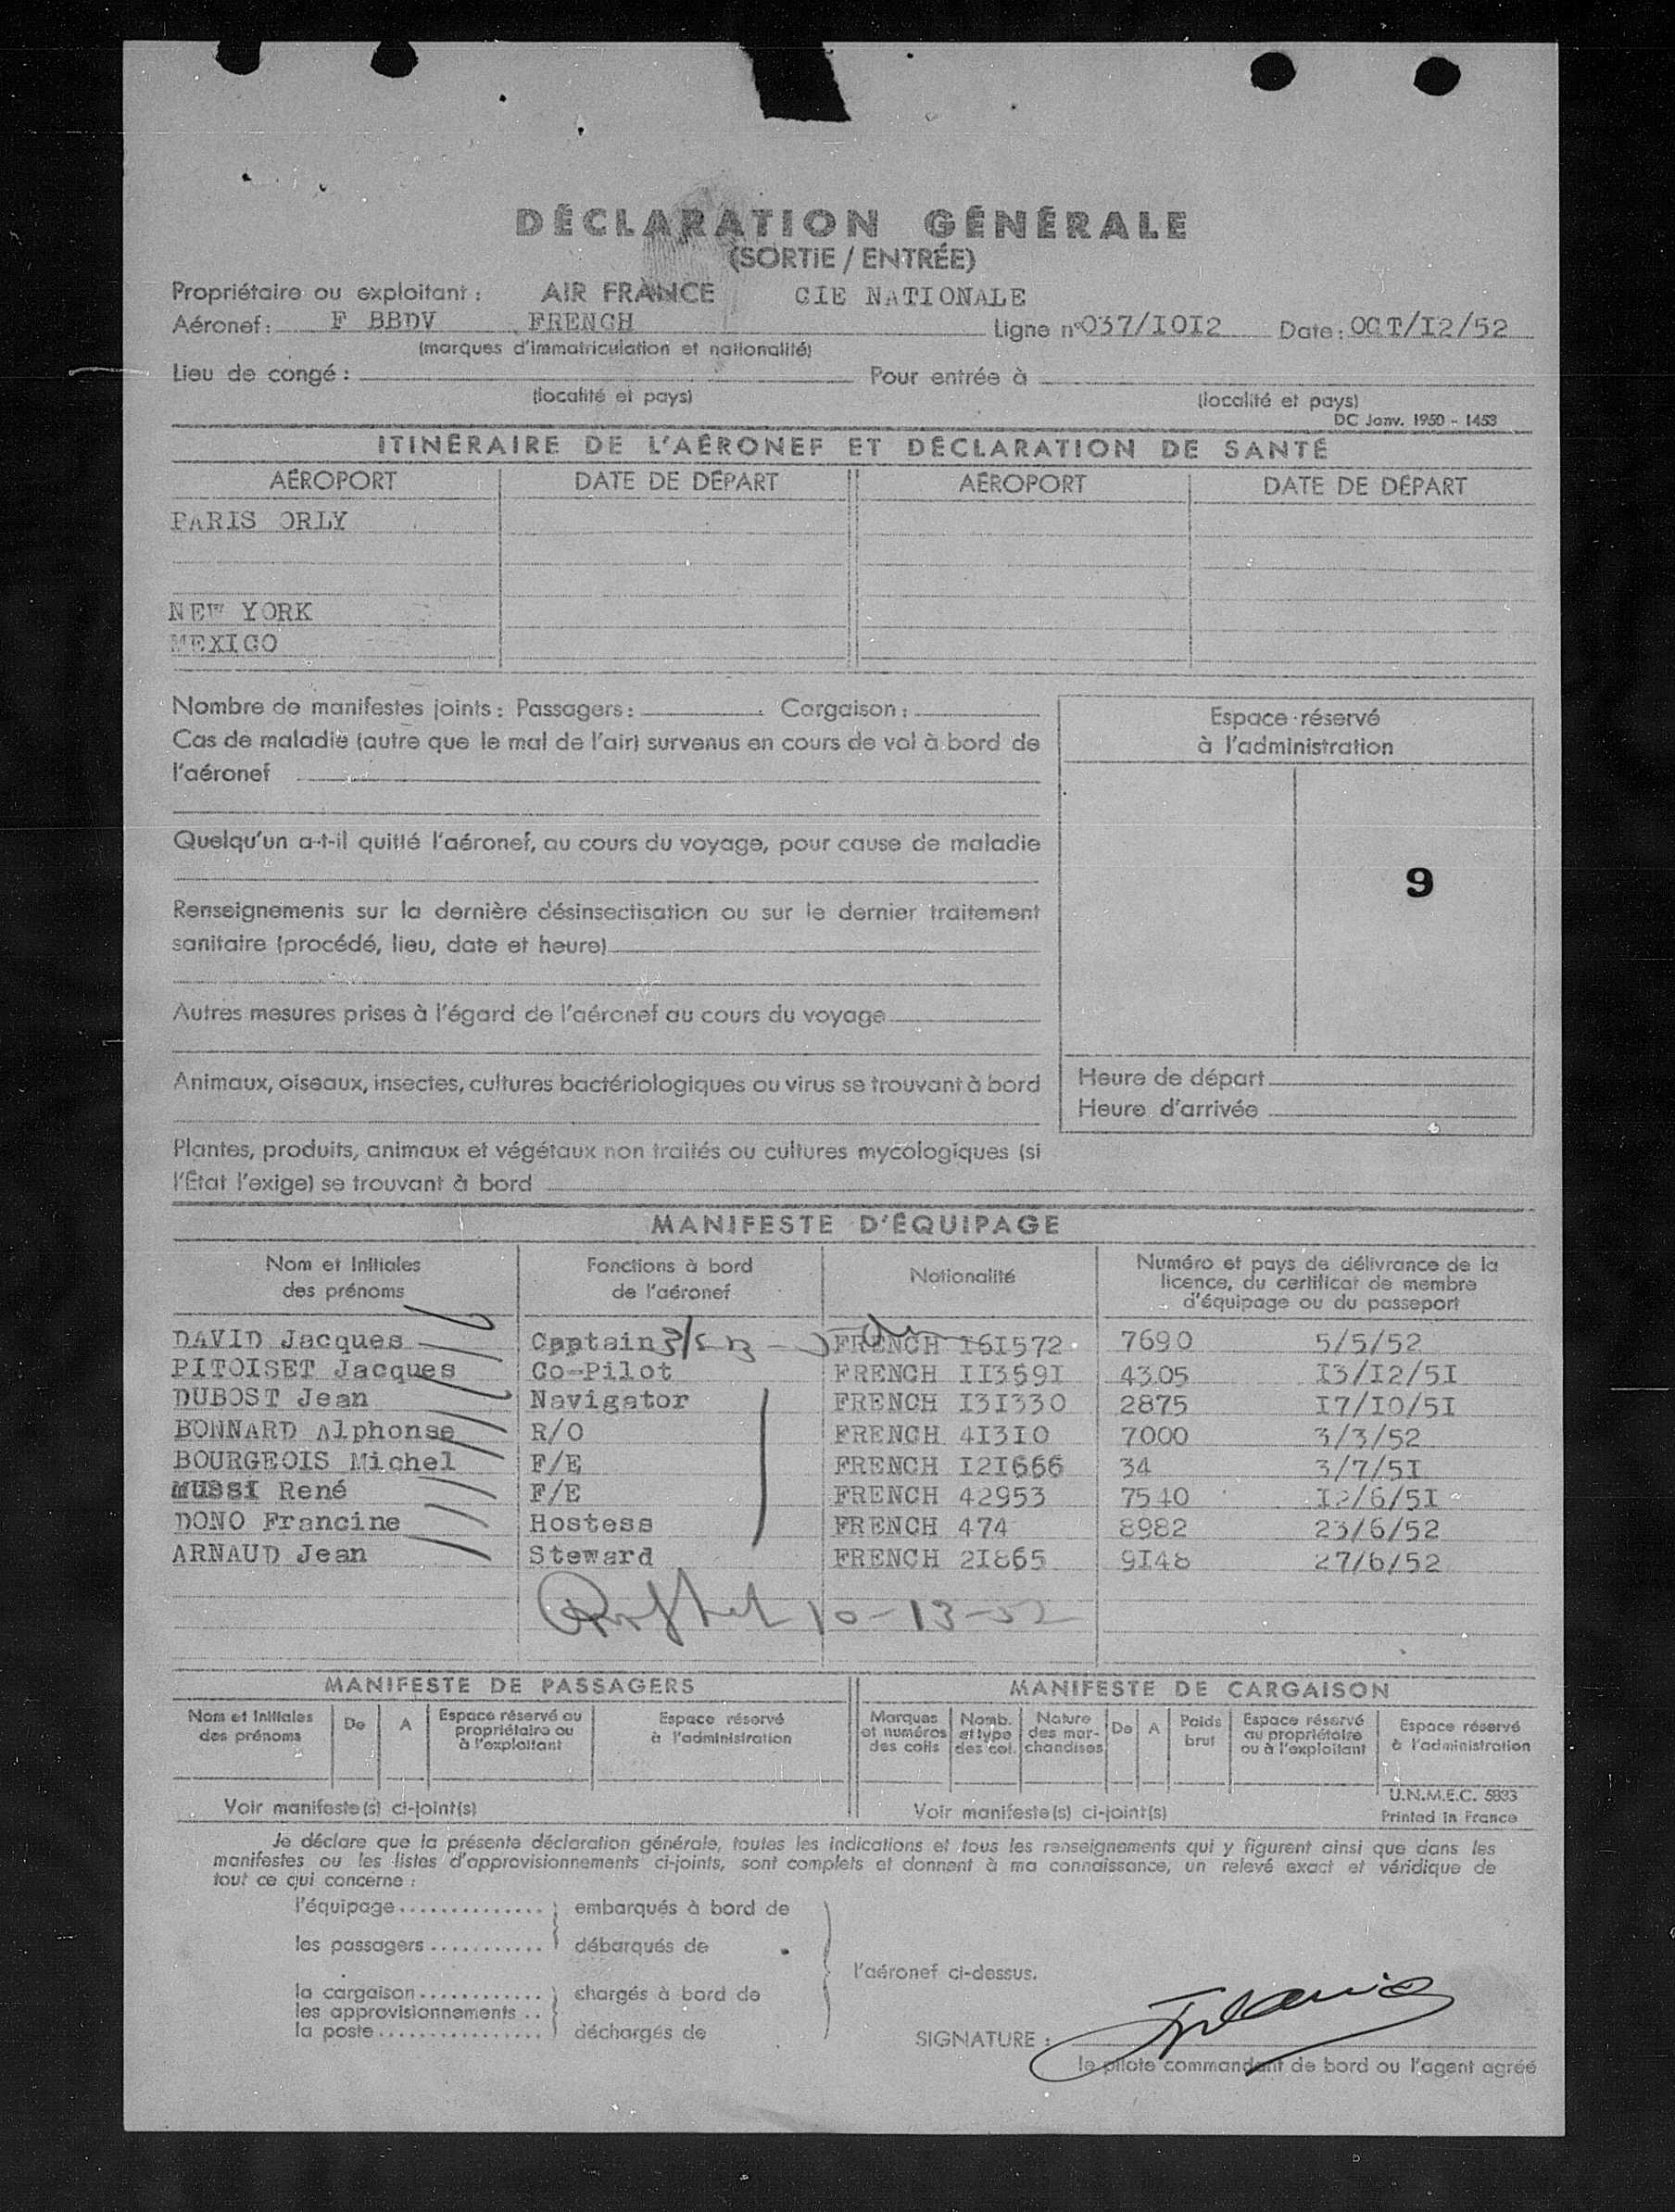 DÉCLARATION GÉNÉRALE
(SORTIE / ENTRÉE)
Propriétaire ou exploitant : AIR FRANCE CIE NATIONALE
Aéronef : F BBDV FRENCH Ligne n° 037/I0I2 Date : OCT/I2/52
(marques d'immatriculation et nationalité)
Lieu de congé : Pour entrée à
(localité et pays) (localité et pays)
DC Janv. 1950 - 1453
ITINÉRAIRE DE L'AÉRONEF ET DÉCLARATION DE SANTÉ
AÉROPORT DATE DE DÉPART AÉROPORT DATE DE DÉPART
PARIS ORLY
NEW YORK
MEXICO
Nombre de manifestes joints : Passagers : Cargaison :
Cas de maladie (autre que le mal de l'air) survenus en cours de vol à bord de
l'aéronef
Quelqu'un a-t-il quitté l'aéronef, au cours du voyage, pour cause de maladie
Renseignements sur la dernière désinsectisation ou sur le dernier traitement
sanitaire (procédé, lieu, date et heure)
Autres mesures prises à l'égard de l'aéronef au cours du voyage
Animaux, oiseaux, insectes, cultures bactériologiques ou virus se trouvant à bord
Plantes, produits, animaux et végétaux non traités ou cultures mycologiques (si
l'État l'exige) se trouvant à bord
Espace réservé
à l'administration
9
Heure de départ
Heure d'arrivée
MANIFESTE D'ÉQUIPAGE
Nom et Initiales des prénoms Fonctions à bord de l'aéronef Nationalité Numéro et pays de délivrance de la licence, du certificat de membre d'équipage ou du passeport
DAVID Jacques Captain FRENCH I6I572 7690 5/5/52
PITOISET Jacques Co-Pilot FRENCH II359I 4305 I3/I2/5I
DUBOST Jean Navigator FRENCH I3I330 2875 I7/I0/5I
BONNARD Alphonse R/O FRENCH 4I3I0 7000 3/3/52
BOURGEOIS Michel F/E FRENCH I2I666 34 3/7/5I
MUSSI René F/E FRENCH 42953 7540 I2/6/5I
DONO Francine Hostess FRENCH 474 8982 23/6/52
ARNAUD Jean Steward FRENCH 2I865 9I48 27/6/52
10-13-52
MANIFESTE DE PASSAGERS MANIFESTE DE CARGAISON
Nom et Initiales des prénoms De A Espace réservé au propriétaire ou à l'exploitant Espace réservé à l'administration Marques et numéros des colis Nomb. et type des col. Nature des marchandises De A Poids brut Espace réservé au propriétaire ou à l'exploitant Espace réservé à l'administration
Voir manifeste(s) ci-joint(s) Voir manifeste(s) ci-joint(s)
U.N.M.E.C. 5893
Printed in France
Je déclare que la présente déclaration générale, toutes les indications et tous les renseignements qui y figurent ainsi que dans les
manifestes ou les listes d'approvisionnements ci-joints, sont complets et donnent à ma connaissance, un relevé exact et véridique de
tout ce qui concerne :
l'équipage .............. embarqués à bord de
les passagers ........... débarqués de
l'aéronef ci-dessus.
la cargaison ............ chargés à bord de
les approvisionnements ..
la poste ................ déchargés de
SIGNATURE :
le pilote commandant de bord ou l'agent agréé